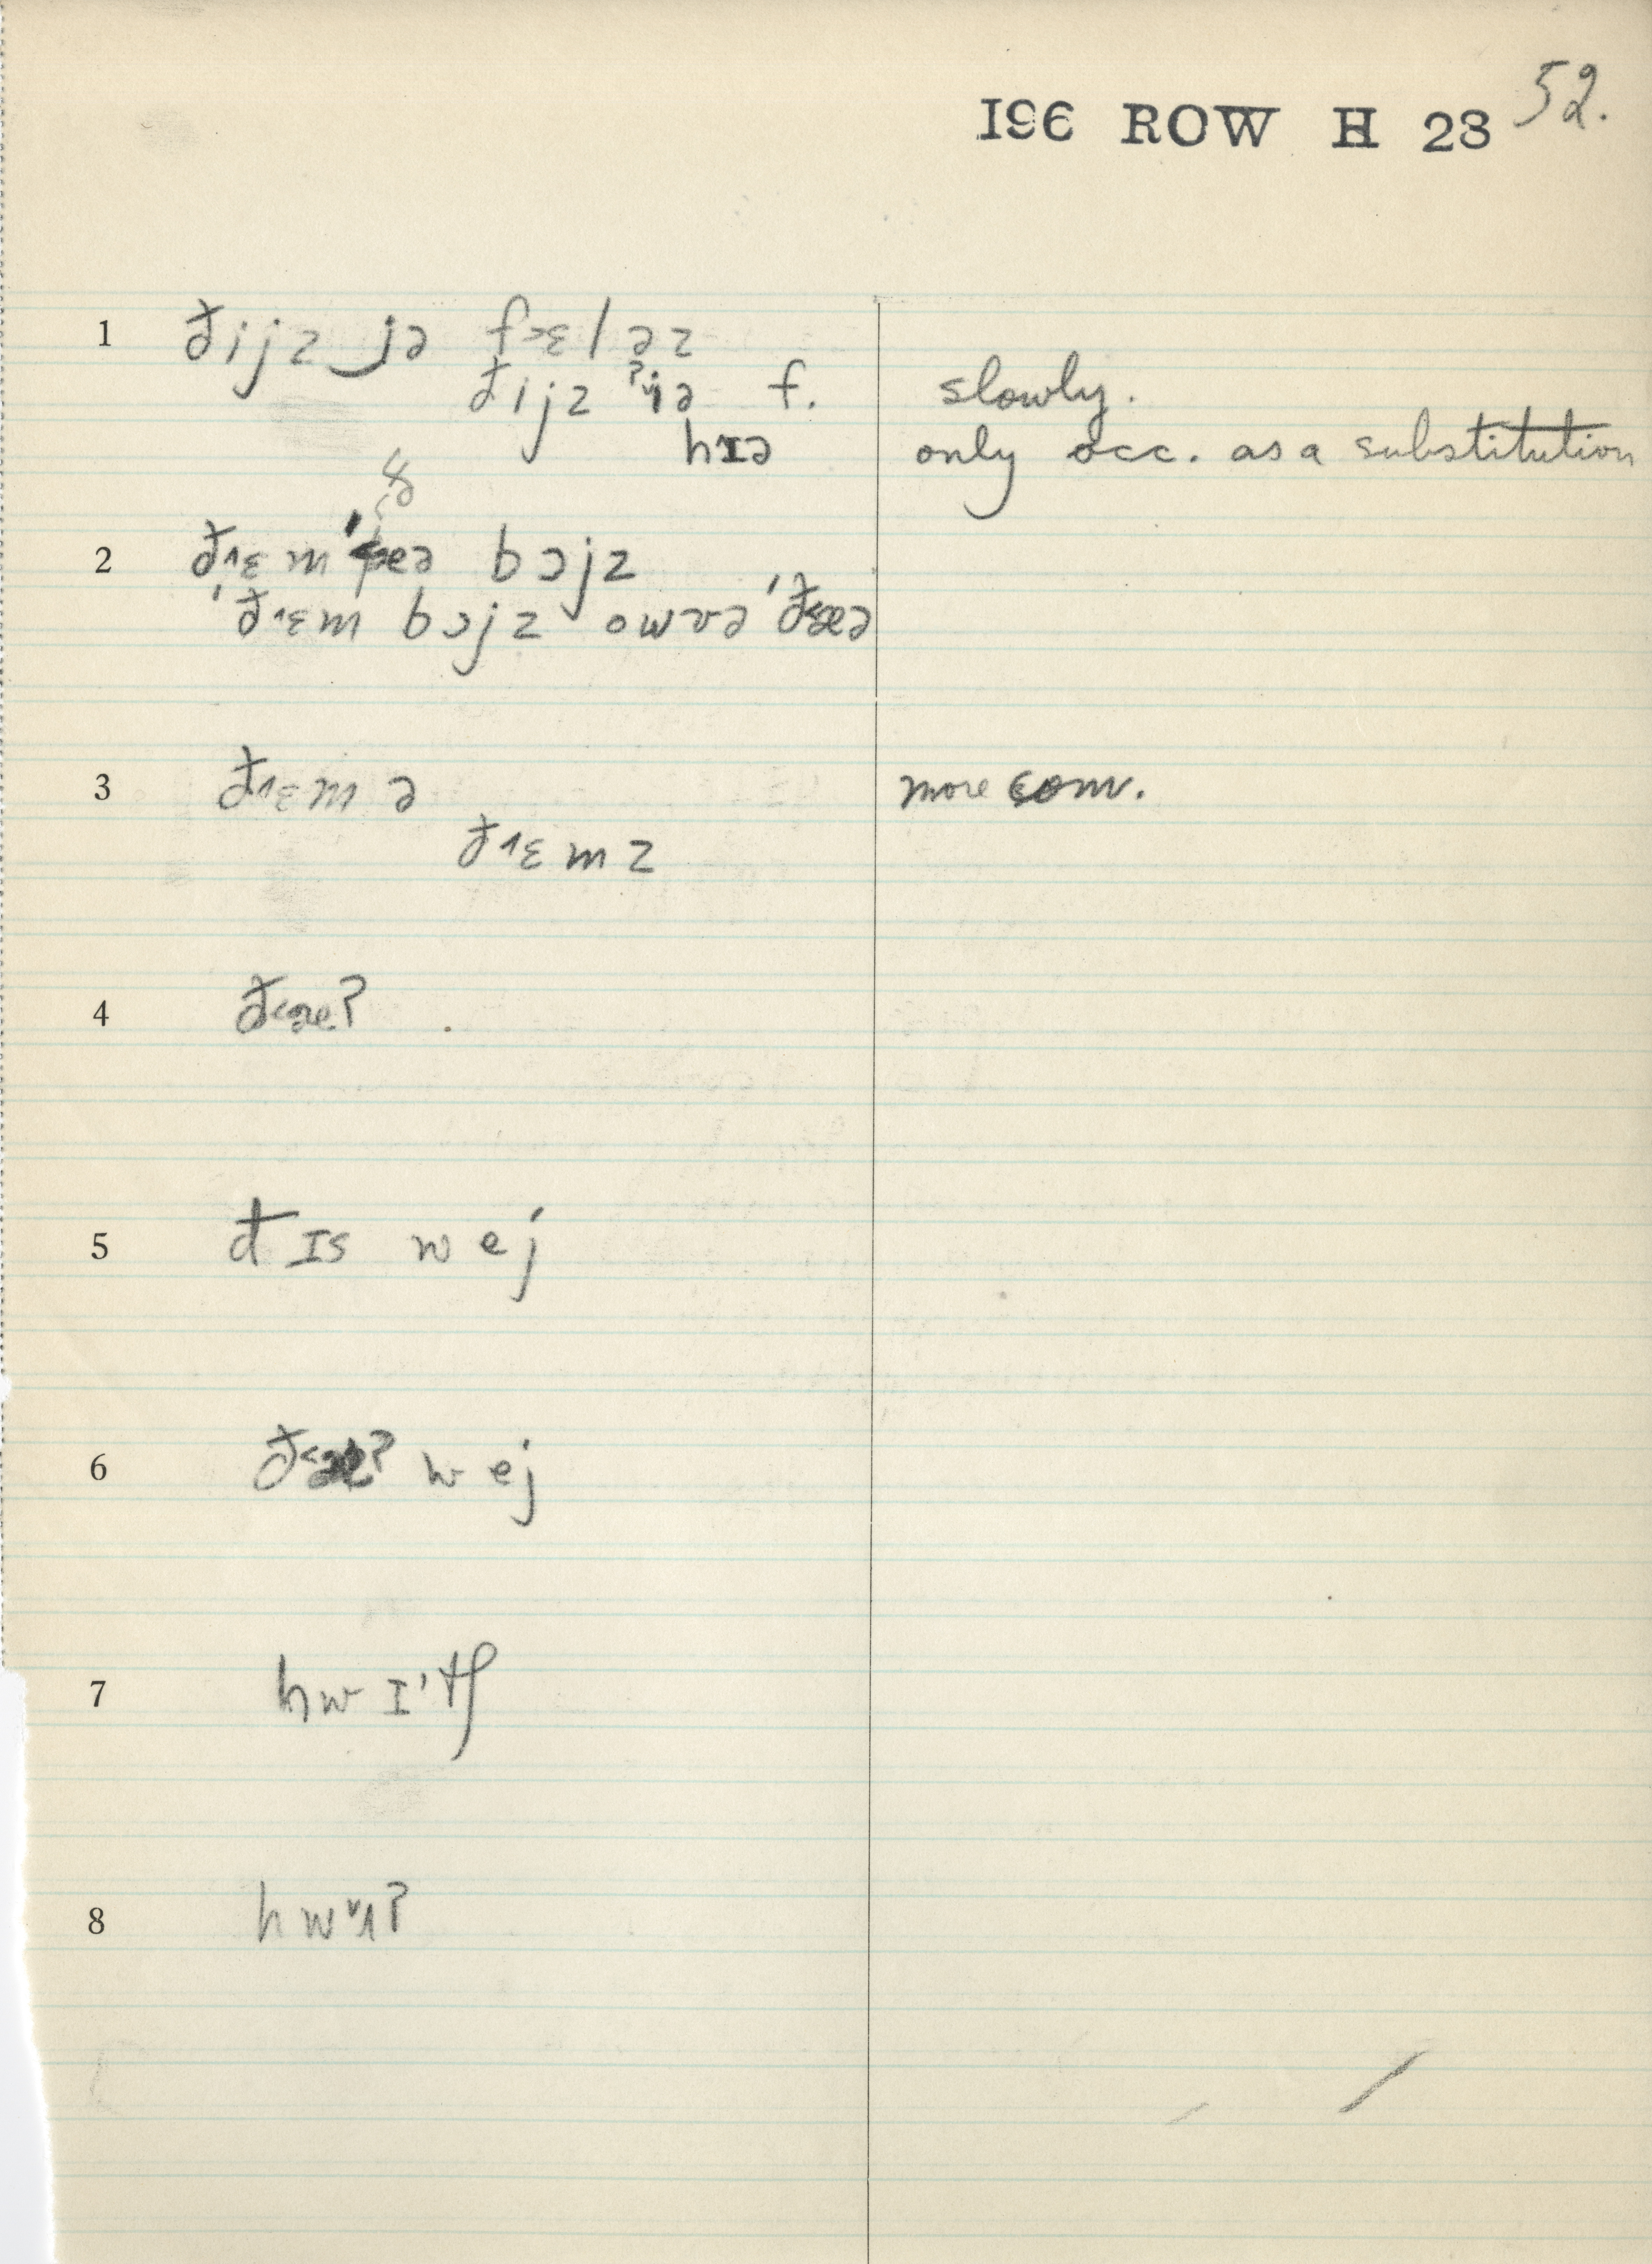 I96 ROW H 28 52.
1 ðijz‿jə f>ɛləz
ðijz ˀjə f. slowly.
hɪə only occ. as a substitution
2 ð˄ɛm ðeə bɔjz
'ð˄ɛm bɔjz owvə 'ð<æə
3 ð˄ɛm ə more com.
ð˄ɛmz
4 ð<æ?
5 ðɪs wej
6 ð<æ? wej
7 hwɪ'tʃ
8 hw˅ʌ?